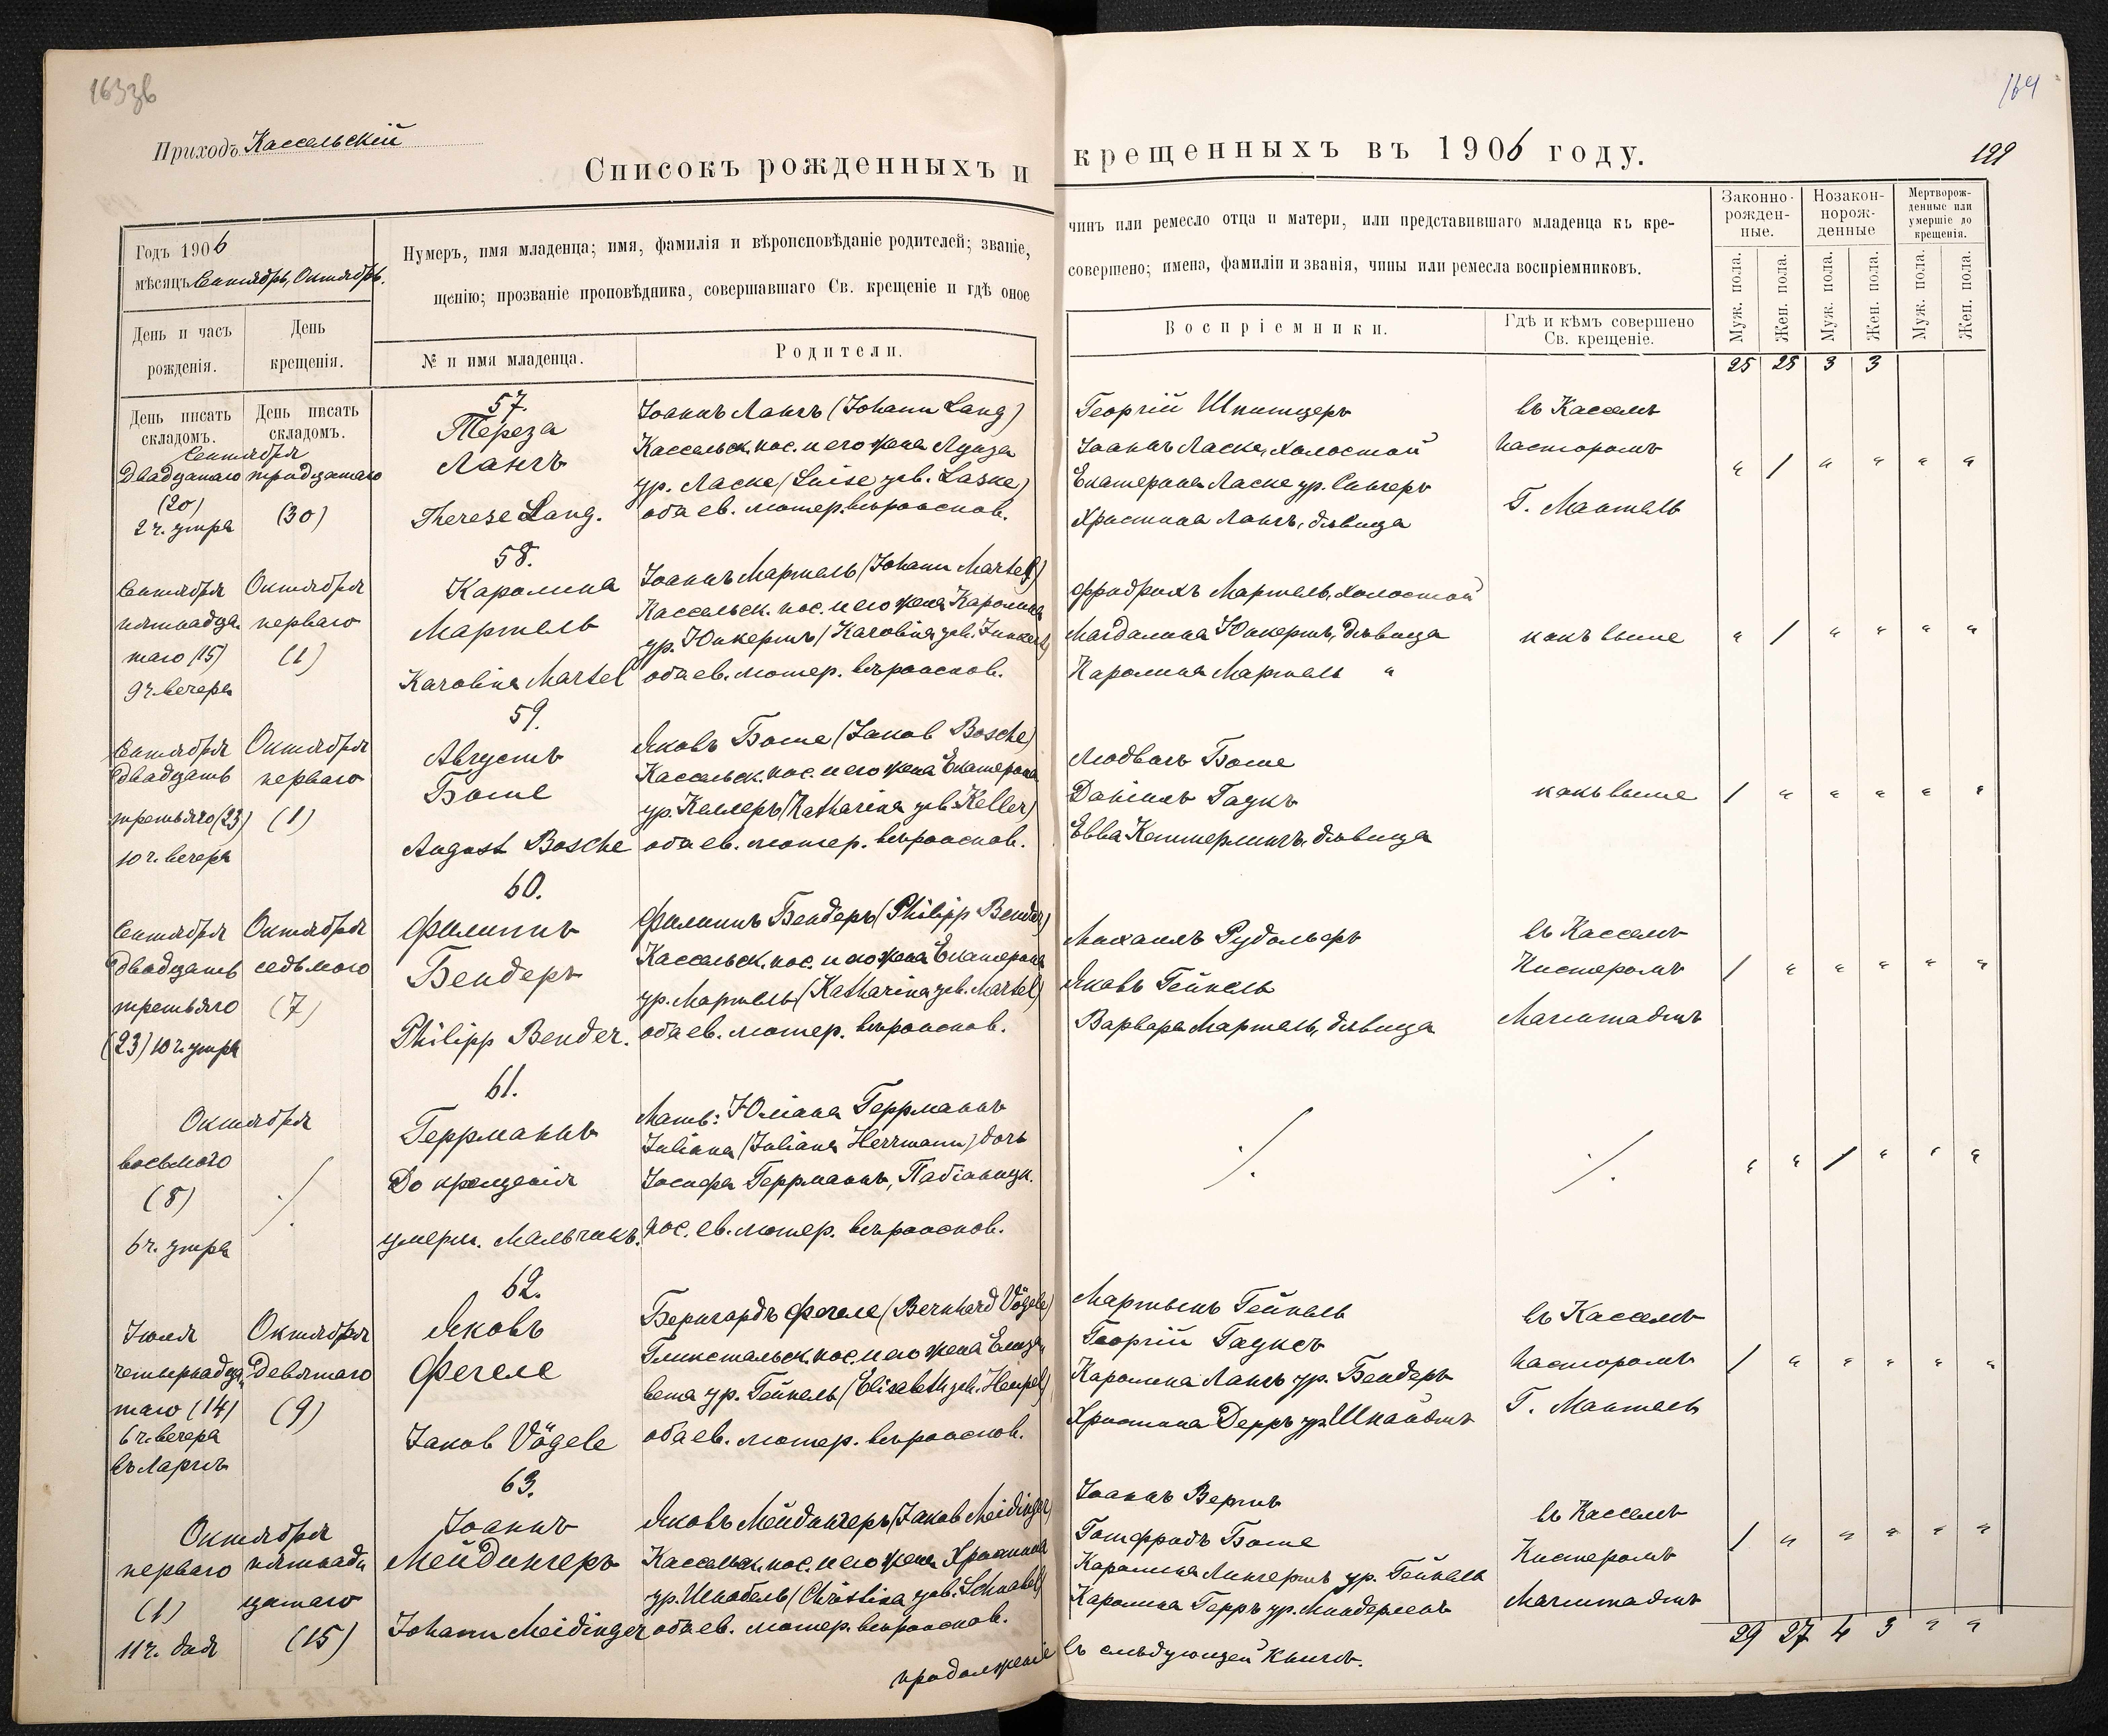 163зв
164
199
Приходъ Кассельскій
Списокъ рожденныхъ и крещенныхъ въ 1906 году.
Годъ 1906
мѣсяцъ Сентябрь, Октябрь.
Нумеръ, имя младенца; имя, фамилія и вѣроисповѣданіе родителей; званіе, чинъ или ремесло отца и матери, или представившаго младенца къ кре-
щенію; прозваніе проповѣдника, совершавшаго Св. крещеніе и гдѣ оное совершено; имена, фамиліи и званія, чины или ремесла воспріемниковъ.
День и часъ рожденія.
День крещенія.
№ и имя младенца.
Родители.
Воспріемники.
Гдѣ и кѣмъ совершено
Св. крещеніе.
Законно-
рожден-
ные.
Незакон-
норож-
денные
Мертворож-
денные или
умершіе до
крещенія.
Муж. пола.
Жен. пола.
Муж. пола.
Жен. пола.
Муж. пола.
Жен. пола.
25 25 3 3
День писать
складомъ.
День писать
складомъ.
Сентября
Двадцатаго
(20)
2 ч. утра
тридцатаго
(30)
57.
Тереза
Лангъ
Therese Lang.
Іоаннъ Лангъ (Johann Lang)
Кассельск. пос. и его жена Луиза
ур. Ласке (Luise geb. Laske)
оба ев. лютер. вѣроиспов.
Георгій Шпитцеръ
Іоаннъ Ласке, холостой
Екатерина Ласке ур. Сингеръ
Христина Лангъ, дѣвица
въ Касселѣ
пасторомъ
Г. Мантель
" / " " " "
Сентября
пятнадца-
таго (15)
9 ч. вечера
Октября
перваго
(1)
58.
Каролина
Мартель
Karolina Martel
Іоаннъ Мартель (Johann Martel)
Кассельск. пос. и его жена Каролина
ур. Юнкертъ (Karolina geb. Junkert)
оба ев. лютер. вѣроиспов.
Фридрихъ Мартель, холостой
Магдалина Юнкертъ, дѣвица
Каролина Мартель "
какъ выше
" / " " " "
Сентября
двадцать
третьяго (23)
10 ч. вечера
Октября
перваго
(1)
59.
Августъ
Боше
August Bosche
Яковъ Боше (Jakob Bosche)
Кассельск. пос. и его жена Екатерина
ур. Келлеръ (Katharina geb. Keller)
оба ев. лютер. вѣроиспов.
Людвигъ Боше
Даніилъ Гаукъ
Евва Кеттерлингъ, дѣвица
какъ выше
/ " " " " "
Сентября
двадцать
третьяго
(23) 10 ч. утра
Октября
седьмого
(7)
60.
Филиппъ
Бендеръ
Philipp Bender.
Филиппъ Бендеръ (Philipp Bender)
Кассельск. пос. и его жена Екатерина
ур. Мартель (Katharina geb. Martel)
оба ев. лютер. вѣроиспов.
Михаилъ Рудольфъ
Яковъ Гейпель
Варвара Мартель, дѣвица
въ Касселѣ
Кистеромъ
Магштадтъ
/ " " " " "
Октября
восьмого
(8)
6 ч. утра
/.
61.
Геррманнъ
До крещенія
умерш. Мальчикъ.
Мать: Юліана Геррманнъ
Juliana (Juliana Herrmann) дочь
Іосифа Геррманнъ,
пос. ев. лютер. вѣроиспов.
/.
/.
" " / " " "
Іюля
четырнадца-
таго (14)
6 ч. вечера
въ Ларгѣ
Октября
девятаго
(9)
62.
Яковъ
Фегеле
Jakob Vögele
Бернгардъ Фегеле (Bernhard Vögele)
Глюкстальск. пос. и его жена Елиза-
вета ур. Гейпель (Elisabeth geb. Heupel)
оба ев. лютер. вѣроиспов.
Мартынъ Гейпель
Георгій Гауксъ
Каролина Лангъ ур. Бендеръ
Христина Дерръ ур. Шнайдтъ
въ Касселѣ
пасторомъ
Г. Мантель
/ " " " " "
Октября
перваго
(1)
11 ч. дня
пятнад-
цатаго
(15)
63.
Іоаннъ
Мейдингеръ
Johann Meidinger
Яковъ Мейдингеръ (Jakob Meidinger)
Кассельск. пос. и его жена Христина
ур. Шнабель (Christina geb. Schnabel)
оба ев. лютер. вѣроиспов.
Іоаннъ Вертъ
Готфридъ Боше
Каролина Лингертъ ур. Гейпель
Каролина Герръ ур. Миндерленъ
въ Касселѣ
Кистеромъ
Магштадтъ
/ " " " " "
29 27 4 3 " "
продолженіе въ слѣдующей книгѣ.